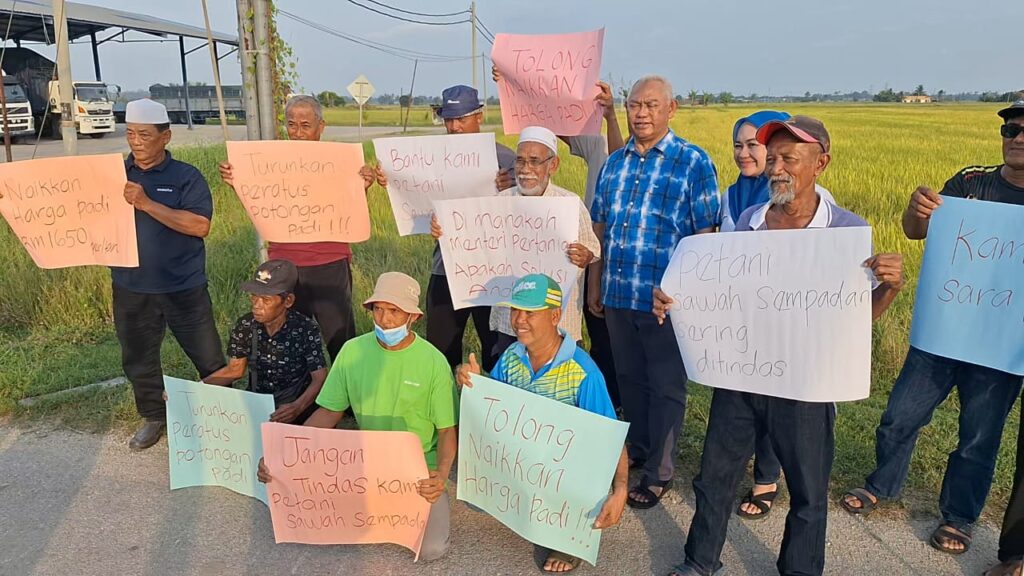 Naikkan
Harga padi
RM1650
Turunkan
peratus
potongan
padi !!!
Bantu kami
petani
TOLONG
NAIKKAN
HARGA PADI
Dimanakah
Menteri Pertania
Apakah Solusi
Petani
sawah Sempadan
sering
ditindas
Kam
sara
Turunkan
Peratus
potongan
padi
Jangan
Tindas kami
petani
sawah Sempada
Tolong
Naikkan
Harga Padi !!!